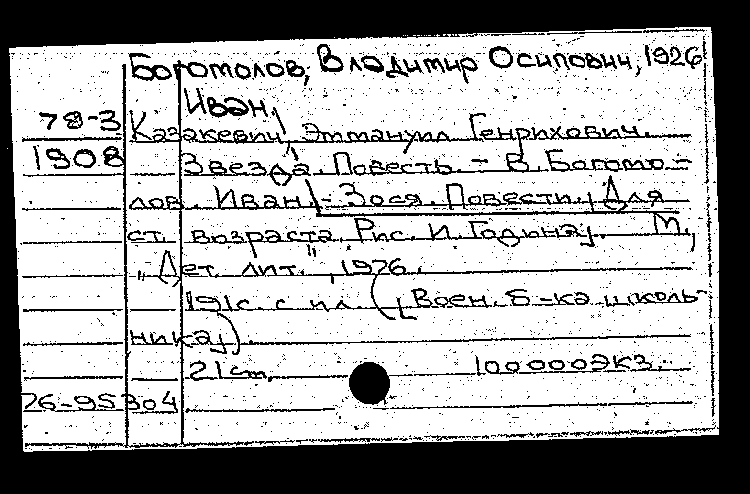 Богомолов, Владимир Осипович, 1926
Иван.
78-3 Казакевич, Эммануил Генрихович.
1908 Звезда. Повесть. - В. Богомо-
лов. Иван. - Зося. Повести. [Для
ст. возраста. Рис. И. Годына]. М.,
"Дет. лит.", 1976.
191 с. с ил. ([Воен. б-ка школь-
ника]).
21 см. 100000экз.
76-95304